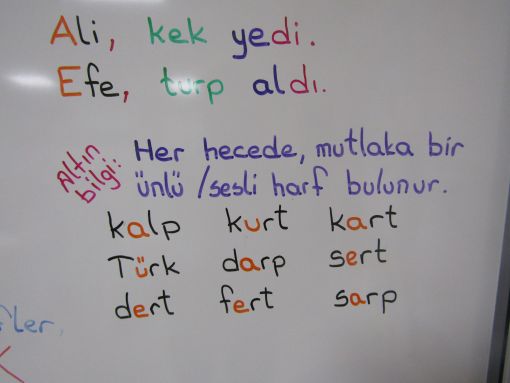 Ali, kek yedi.
Efe, turp aldı.
Altın bilgi:
Her hecede, mutlaka bir
ünlü /sesli harf bulunur.
kalp kurt kart
Türk darp sert
dert fert sarp